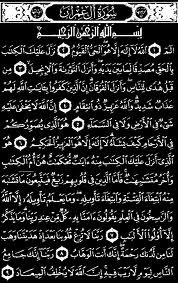 سورة آل عمران
بسم الله الرحمن الرحيم
الم ١ الله لا إله إلا هو الحي القيوم ٢ نزل عليك الكتاب
بالحق مصدقا لما بين يديه وأنزل التوراة والإنجيل ٣ من
قبل هدى للناس وأنزل الفرقان إن الذين كفروا بآيات الله لهم
عذاب شديد والله عزيز ذو انتقام ٤ إن الله لا يخفى عليه
شيء في الأرض ولا في السماء ٥ هو الذي يصوركم
في الأرحام كيف يشاء لا إله إلا هو العزيز الحكيم ٦ هو
الذي أنزل عليك الكتاب منه آيات محكمات هن أم الكتاب
وأخر متشابهات فأما الذين في قلوبهم زيغ فيتبعون ما تشابه
منه ابتغاء الفتنة وابتغاء تأويله وما يعلم تأويله إلا الله
والراسخون في العلم يقولون آمنا به كل من عند ربنا وما يذكر
إلا أولوا الألباب ٧ ربنا لا تزغ قلوبنا بعد إذ هديتنا وهب
لنا من لدنك رحمة إنك أنت الوهاب ٨ ربنا إنك جامع
الناس ليوم لا ريب فيه إن الله لا يخلف الميعاد ٩